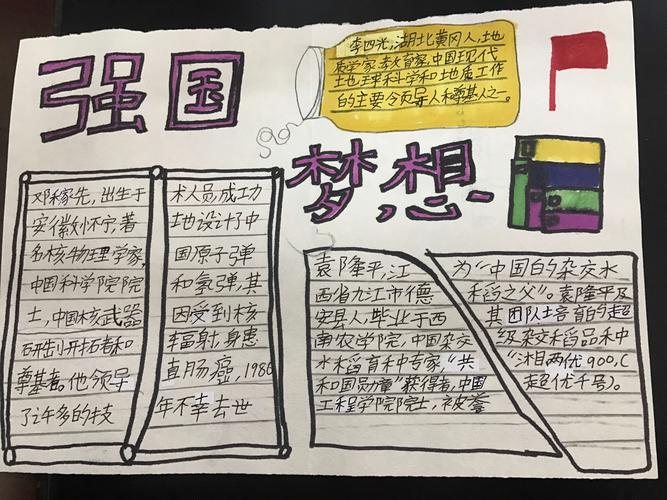 强国
李四光,湖北黄冈人,地
质学家、教育家,中国现代
地球科学和地质工作
的主要领导人和尊基人之一。
梦想
邓稼先,出生于
安徽怀宁,著
名核物理学家,
中国科学院院
士,中国核武器
研制开拓者和
尊基者。他领导
了许多的技
术人员,成功
地设计了中
国原子弹
和氢弹,其
因受到核
辐射,身患
直肠癌,1986
年不幸去世
袁隆平,江
西省九江市德
安县人,毕业于西
南农学院,中国杂交
水稻育种专家,“共
和国勋章”获得者,中国
工程学院院士,被誉
为“中国的杂交水
稻之父”。袁隆平及
其团队培育的超
级杂交稻品种
“湘两优900,(
超优千号)。